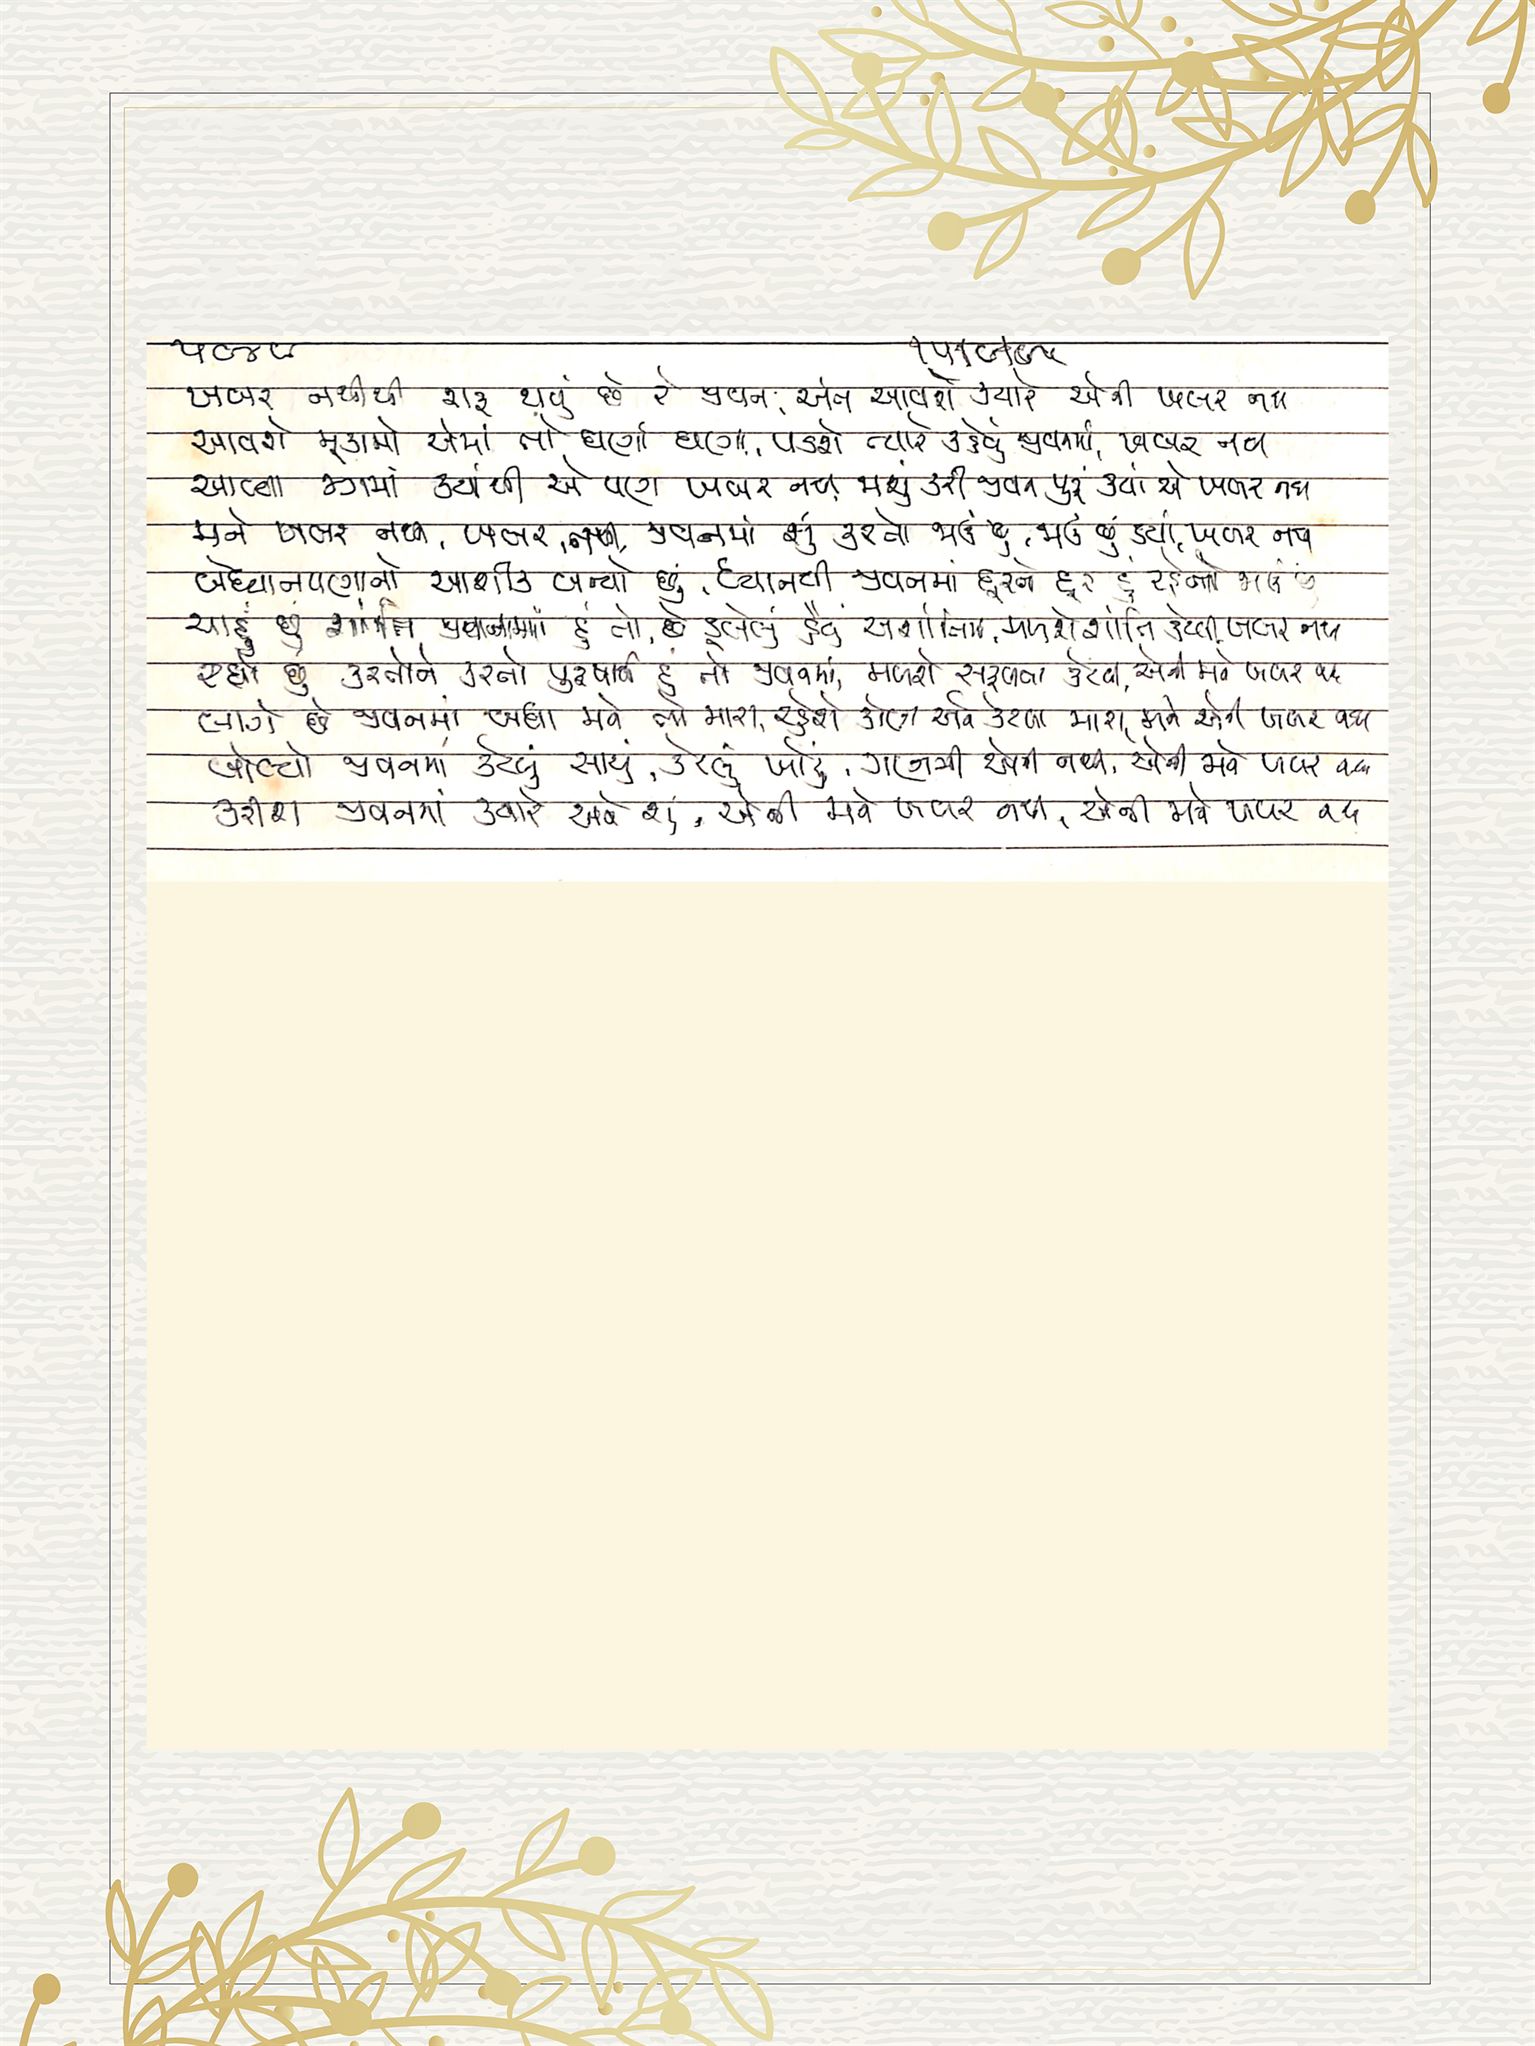 ૫૯૪૮
ખબર નથીથી શરૂ થયું છે રે જીવન, અંત આવશે ક્યારે એની ખબર નથી
આવશે મૂકામો એમાં તો ઘણાં ઘણાં, પડશે ત્યારે કહેવું જીવનમાં, ખબર નથી
આવ્યા જગમાં ક્યાંથી એ પણ ખબર નથી કરી જીવન પુરું ક્યાં એ ખબર નથી
મને ખબર નથી, ખબર નથી, જીવનમાં શું કરતો જાઉં છું, જાઉં છું ક્યાં, ખબર નથી
બેધ્યાનપણાનો આશીક બન્યો છું, ધ્યાનથી જીવનમાં દૂરને દૂર હું રહેતો જાઉં છું
ચાહું છું શાંતિ જીવનમાં હું તો, છે કેટલી ખબર નથી
રહ્યો છું કરતોને કરતો પુરુષાર્થ હું તો જીવનમાં, મળશે સફળતા કેટલી, એની મને ખબર નથી
લાગે છે જીવનમાં બધા મને તો મારા, રહેશે કોણ અને કેટલા મારા, મને એની ખબર નથી
બોલ્યો જીવનમાં કેટલું સાચું, કેટલું ખોટું, ગણત્રી એની નથી, એની મને ખબર નથી
કરીશ જીવનમાં ક્યારે અને શું, એની મને ખબર નથી, એની મને ખબર નથી